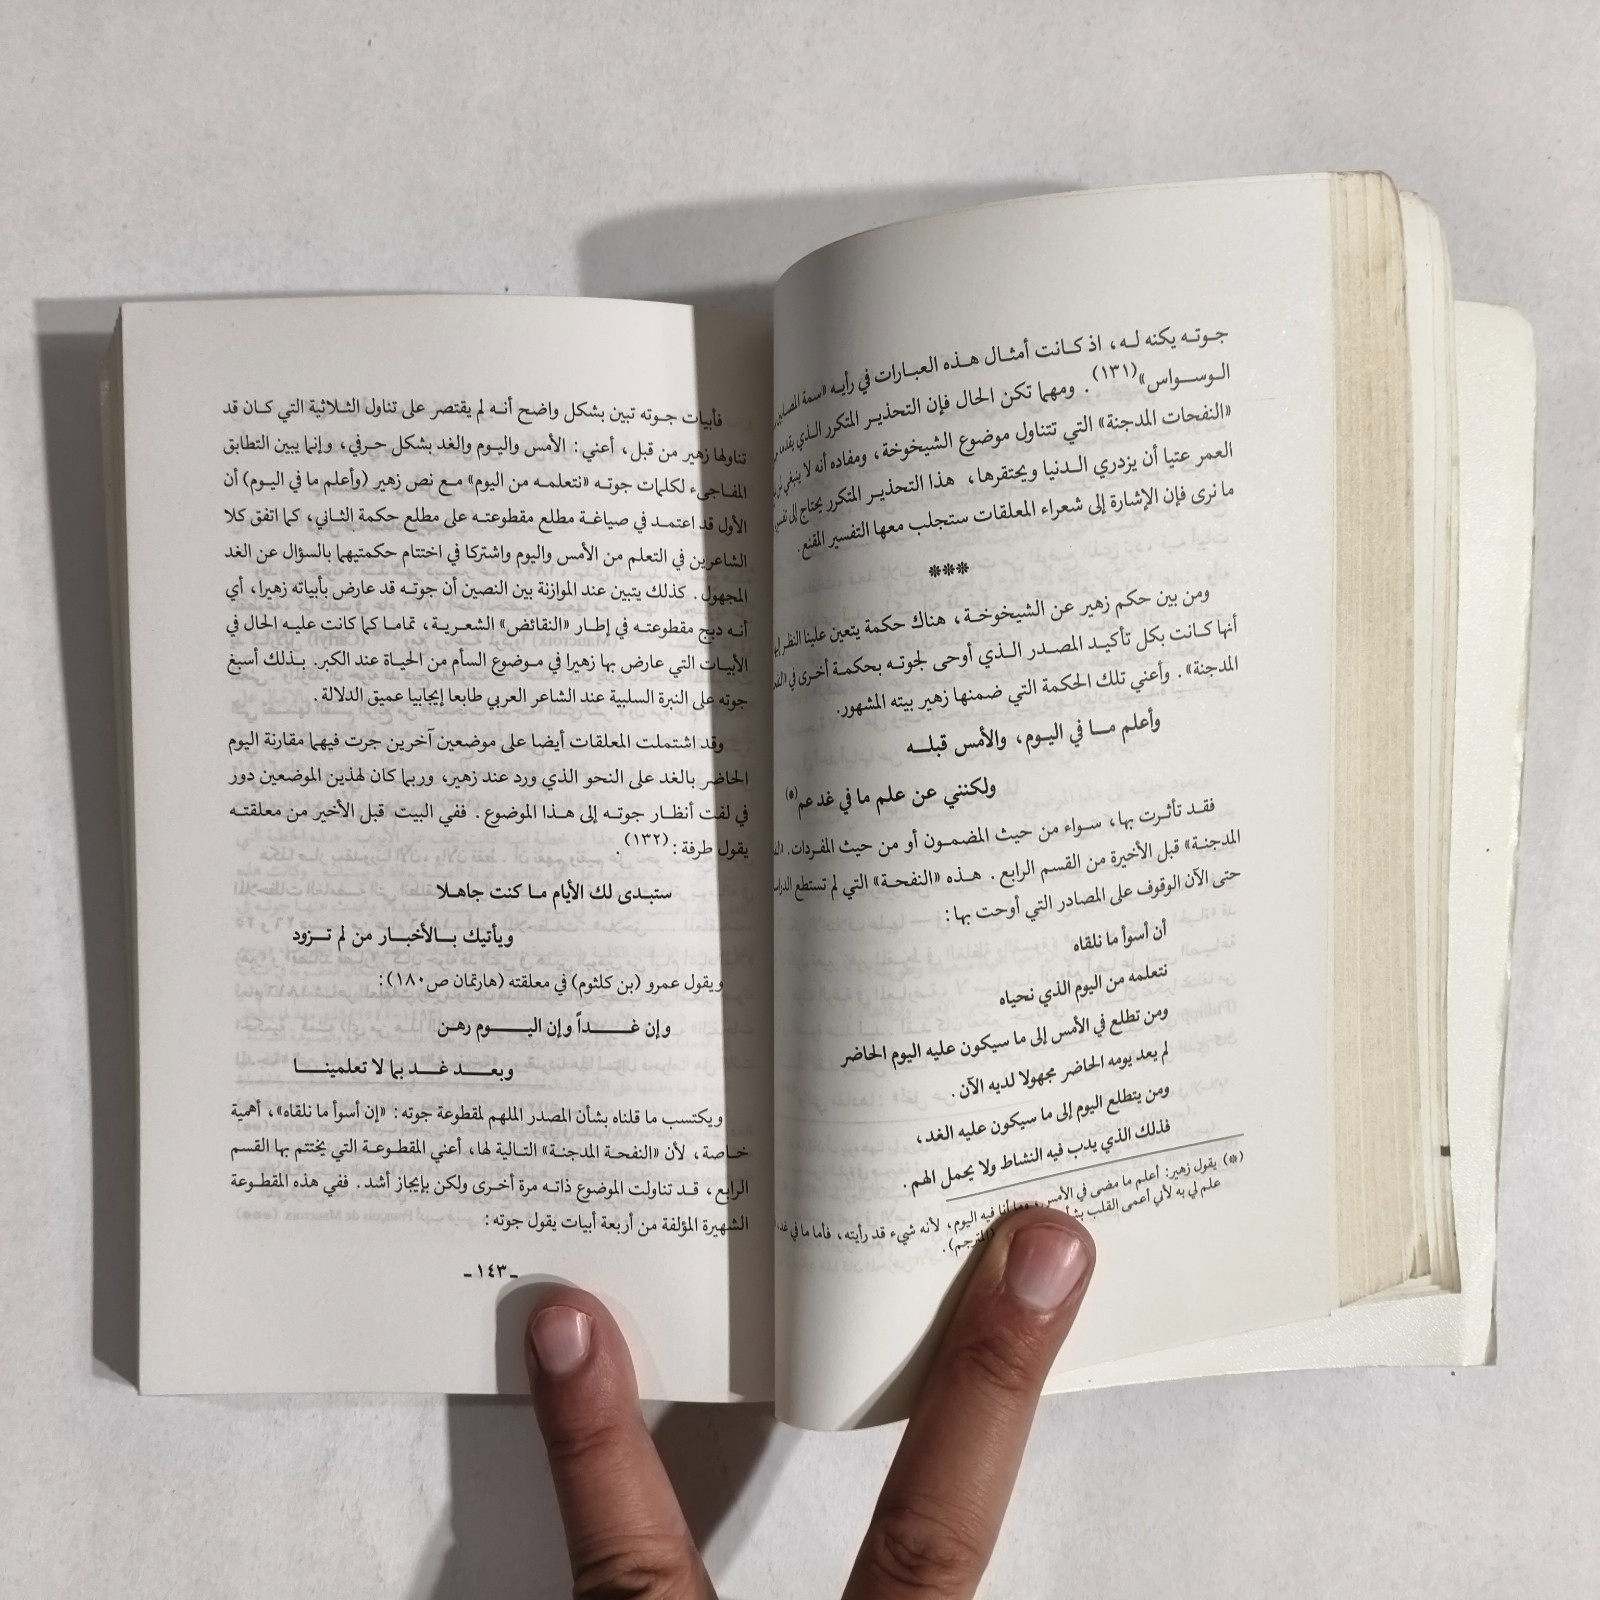 جـوتـه يكنه لـه، اذ كـانت أمثـال هـذه العبـارات في رأيـه «سمة المصابين
الـوسـواس»(١٣١). ومهما تكن الحال فإن التحذيـر المتكرر الـذي يقدمه
«النفحات المدجنة» التي تتناول موضوع الشيخوخة، ومفاده أنه لا ينبغي لمن
العمر عتيا أن يزدري الـدنيا ويحتقرها، هذا التحذيـر المتكرر يحتاج إلى
ما نرى فإن الإشارة إلى شعراء المعلقات ستجلب معها التفسير المقنع.
***
ومن بين حكم زهير عن الشيخوخـة، هناك حكمة يتعين علينا النظر إليها
أنها كـانت بكل تأكيـد المصدر الـذي أوحى لجوته بحكمـة أخرى في
المدجنة». وأعني تلك الحكمة التي ضمنها زهير بيته المشهور.
وأعلم مـا في اليـوم، والأمس قبلـه
ولكنني عن علم ما في غد عم(*)
فقـد تأثـرت بها، سـواء من حيث المضمـون أو من حيث المفـردات،
المدجنـة» قبل الأخيرة من القسم الرابع. هـذه «النفحـة» التي لم تستطع
حتى الآن الوقوف على المصادر التي أوحت بها:
أن أسوأ ما نلقاه
نتعلمه من اليوم الذي نحياه
ومن تطلع في الأمس إلى ما سيكون عليه اليوم الحاضر
لم يعد يومه الحاضر مجهولا لديه الآن.
ومن يتطلع اليوم إلى ما سيكون عليه الغد،
فذلك الذي يدب فيه النشاط ولا يحمل الهم.
(*) يقول زهير: أعلم ما مضى في الأمس وما أنا فيه اليوم، لأنه شيء قد رأيته، فأما ما في
علم لي به لأني أعمى القلب (المترجم).
فأبيات جـوته تبين بشكل واضح أنـه لم يقتصر على تناول الثـلاثية التي كـان قد
تناولها زهير من قبل، أعني: الأمس واليـوم والغد بشكل حـرفي، وإنما يبين التطابق
المفـاجىء لكلمات جوتـه «نتعلمـه من اليوم» مـع نص زهير (وأعلم ما في اليـوم) أن
الأول قد اعتمـد في صياغـة مطلع مقطوعتـه على مطلع حكمة الثـاني، كما اتفق كلا
الشاعرين في التعلم من الأمس واليوم واشتركا في اختتام حكمتيهما بالسؤال عن الغد
المجهول. كذلك يتبين عند الموازنة بين النصين أن جوتـه قد عارض بأبياته زهيرا، أي
أنـه دبج مقطوعتـه في إطـار «النقائض» الشعـريـة، تمامـا كما كانت عليـه الحال في
الأبيـات التي عارض بها زهيرا في مـوضوع السأم من الحياة عند الكبر. بـذلك أسبغ
جوته على النبرة السلبية عند الشاعر العربي طابعا إيجابيا عميق الدلالة.
وقـد اشتملت المعلقات أيضا على موضعين آخرين جرت فيهما مقارنة اليوم
الحاضر بالغد على النحو الذي ورد عند زهير، وربما كان لهذين الموضعين دور
في لفت أنظار جوتـه إلى هـذا الموضوع. ففي البيت قبل الأخير من معلقتـه
يقول طرفة:(١٣٢).
ستبـدى لك الأيام مـا كنت جاهـلا
ويأتيك بـالأخبـار من لم تـزود
ويقول عمرو (بن كلثوم) في معلقته (هارتمان ص١٨٠):
وإن غـــداً وإن اليـــوم رهـن
وبعـــد غـــد بما لا تعلمينـــا
ويكتسب ما قلناه بشأن المصدر الملهم لمقطوعة جوته: «إن أسوأ ما نلقاه»، أهمية
خـاصة، لأن «النفحـة المدجنـة» التالية لها، أعني المقطـوعـة التي يختتم بها القسم
الرابع، قـد تناولت الموضوع ذاتـه مرة أخـرى ولكن بإيجاز أشد. ففي هذه المقطـوعة
الشهيرة المؤلفة من أربعة أبيات يقول جوته:
ـ ١٤٣ ـ